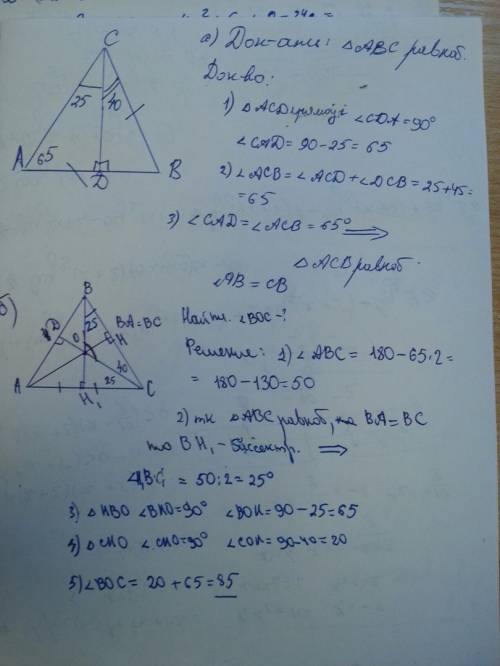 C
а) Док-ать: △ABC равноб.
Док-во:
25 40
1) △ACD прямоуг ∠CDA=90°
∠CAD=90-25=65
A 65 D B
2) ∠ACB=∠ACD+∠DCB=25+45=
=65
3) ∠CAD=∠ACB=65° ⟹
△ACB равноб
∠AB=CB
б)
B
25 BA=BC
Найти. ∠BOC-?
D O H
40
25
A H₁ C
Решение: 1) ∠ABC=180-65·2=
=180-130=50
2) тк △ABC равноб, то BA=BC
то BH₁ - биссектр. ⟹
= 50:2=25°
3) △HBO ∠BHO=90° ∠BOH=90-25=65
4) △CHO ∠CHO=90° ∠COH=90-40=20
5) ∠BOC=20+65=85